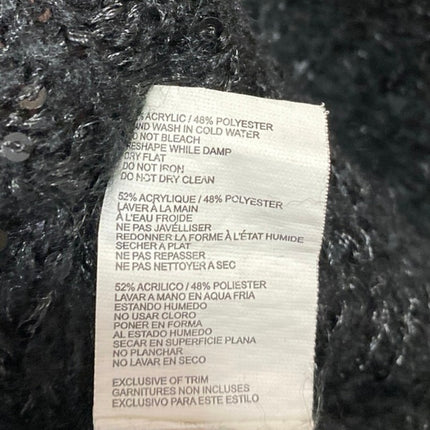 % ACRYLIC / 48% POLYESTER
AND WASH IN COLD WATER
O NOT BLEACH
RESHAPE WHILE DAMP
DRY FLAT
DO NOT IRON
DO NOT DRY CLEAN
52% ACRYLIQUE / 48% POLYESTER
LAVER À LA MAIN
À L'EAU FROIDE
NE PAS JAVÉLLISER
REDONNER LA FORME À L'ÉTAT HUMIDE
SECHER A PLAT
NE PAS REPASSER
NE PAS NETTOYER A SEC
52% ACRILICO / 48% POLIESTER
LAVAR A MANO EN AQUA FRÍA
ESTANDO HUMEDO
NO USAR CLORO
PONER EN FORMA
AL ESTADO HUMEDO
SECAR EN SUPERFICIE PLANA
NO PLANCHAR
NO LAVAR EN SECO
EXCLUSIVE OF TRIM
GARNITURES NON INCLUSES
EXCLUSIVO PARA ESTE ESTILO